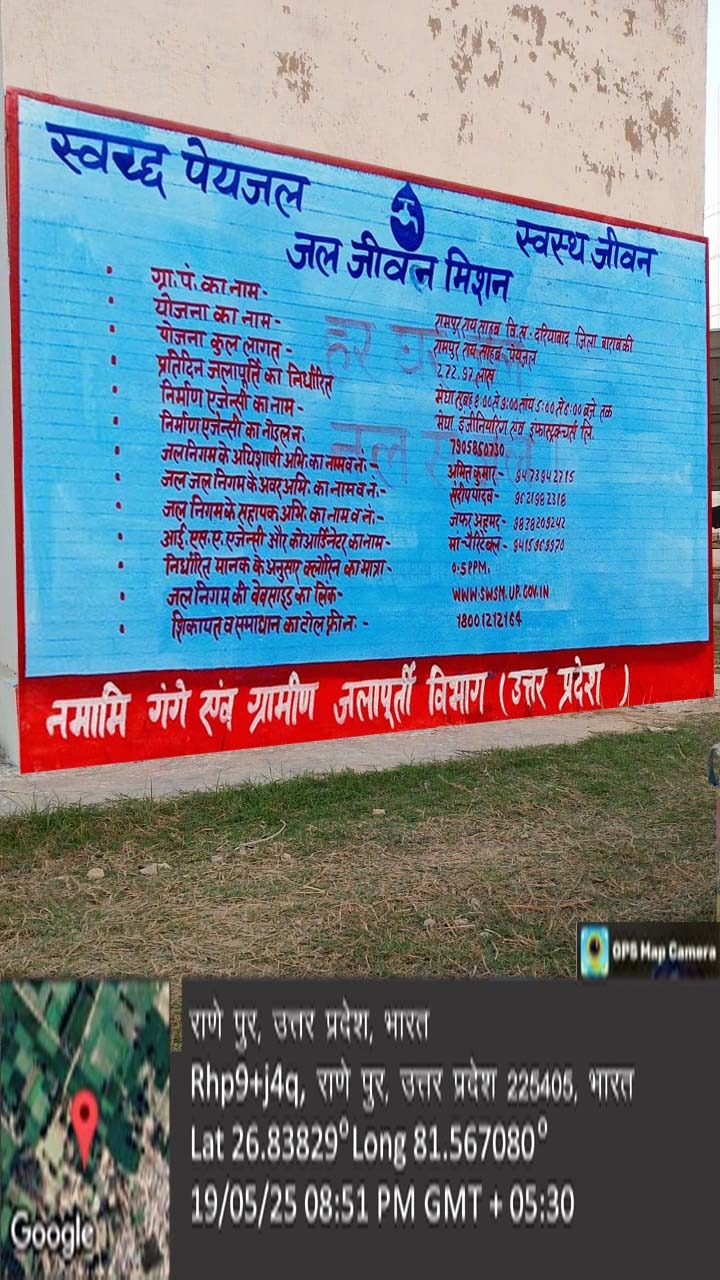 स्वच्छ पेयजल
स्वस्थ जीवन
जल जीवन मिशन
ग्रा. पं. का नाम- रामपुर राय साहब वि. स.- दरियाबाद जिला बाराबंकी
योजना का नाम- रामपुर राय साहब पेयजल
योजना कुल लागत- 272.97 लाख
प्रतिदिन जलापूर्ति का निर्धारित सुबह 8:00 से 9:00 सांय 5:00 से 6:00 बजे तक
निर्माण एजेन्सी का नाम- मेघा इंजीनियरिंग एंव इंफ्रास्ट्रक्चर्स लि.
निर्माण एजेन्सी का नोडल न. 7905850730
जलनिगम के अधिशाषी अभि. का नाम व नं:- अमित कुमार- 9473942715
जल जल निगम के अवर अभि. का नाम व नं:- संदीप यादव- 9621982318
जल निगम के सहायक अभि. का नाम व नं:- जफर अहमद- 9838209242
आई. एस. ए. एजेन्सी और कोआर्डिनेटर का नाम- मां चैरिटेबल- 9415969970
निर्धारित मानक के अनुसार क्लोरिन का मात्रा- 0.5 PPM.
जल निगम की वेबसाइड का लिंक- WWW.SWSM.UP.GOV.IN
शिकायत व समाधान का टोल फ्री न. :- 18001212164
हर घर जल
नमामि गंगे एंव ग्रामीण जलापूर्ती विभाग (उत्तर प्रदेश )
GPS Map Camera
राणे पुर, उत्तर प्रदेश, भारत
Rhp9+j4q, राणे पुर, उत्तर प्रदेश 225405, भारत
Lat 26.83829° Long 81.567080°
19/05/25 08:51 PM GMT + 05:30
Google